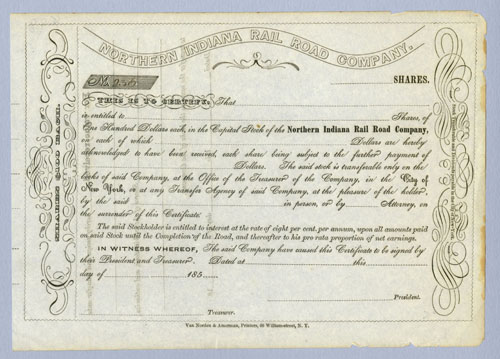 NORTHERN INDIANA RAIL ROAD COMPANY.
No.
SHARES.
THIS IS TO CERTIFY, That
is entitled to Shares, of
One Hundred Dollars each, in the Capital Stock of the Northern Indiana Rail Road Company,
on each of which Dollars are hereby
acknowledged to have been received, each share being subject to the further payment of
Dollars. The said stock is transferable only on the
books of said Company, at the Office of the Treasurer of the Company, in the City of
New York, or at any Transfer Agency of said Company, at the pleasure of the holder,
by the said in person, or by Attorney, on
the surrender of this Certificate.
The said Stockholder is entitled to interest at the rate of eight per cent. per annum, upon all amounts paid
on said Stock until the Completion of the Road, and thereafter to his pro rata proportion of net earnings.
IN WITNESS WHEREOF, The said Company have caused this Certificate to be signed by
their President and Treasurer. Dated at this
day of 185
President.
Treasurer.
Van Norden & Amerman, Printers, 60 William-street, N. Y.
SHARES $100 EACH.